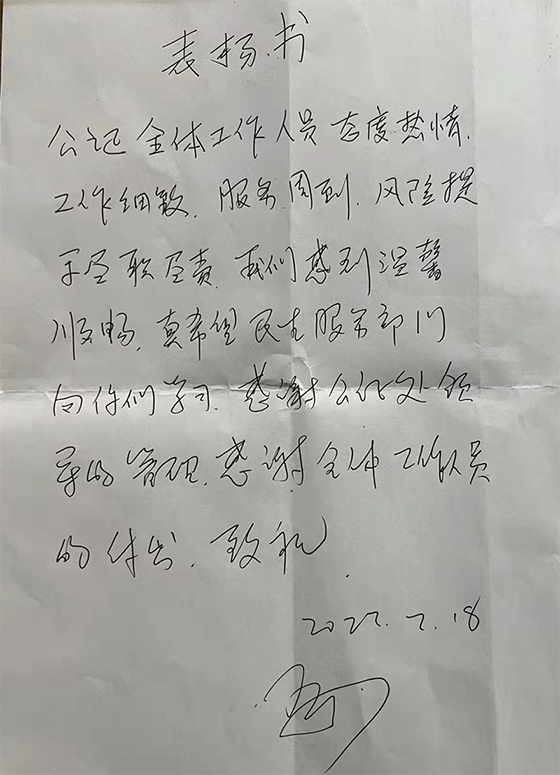 表扬书
公证全体工作人员态度热情.
工作细致. 服务周到. 风险提
示尽职尽责. 我们感到温馨
顺畅. 真希望民生服务部门
向你们学习. 感谢公证处领
导的管理. 感谢全体工作人员
的付出. 致礼.
2022.7.18